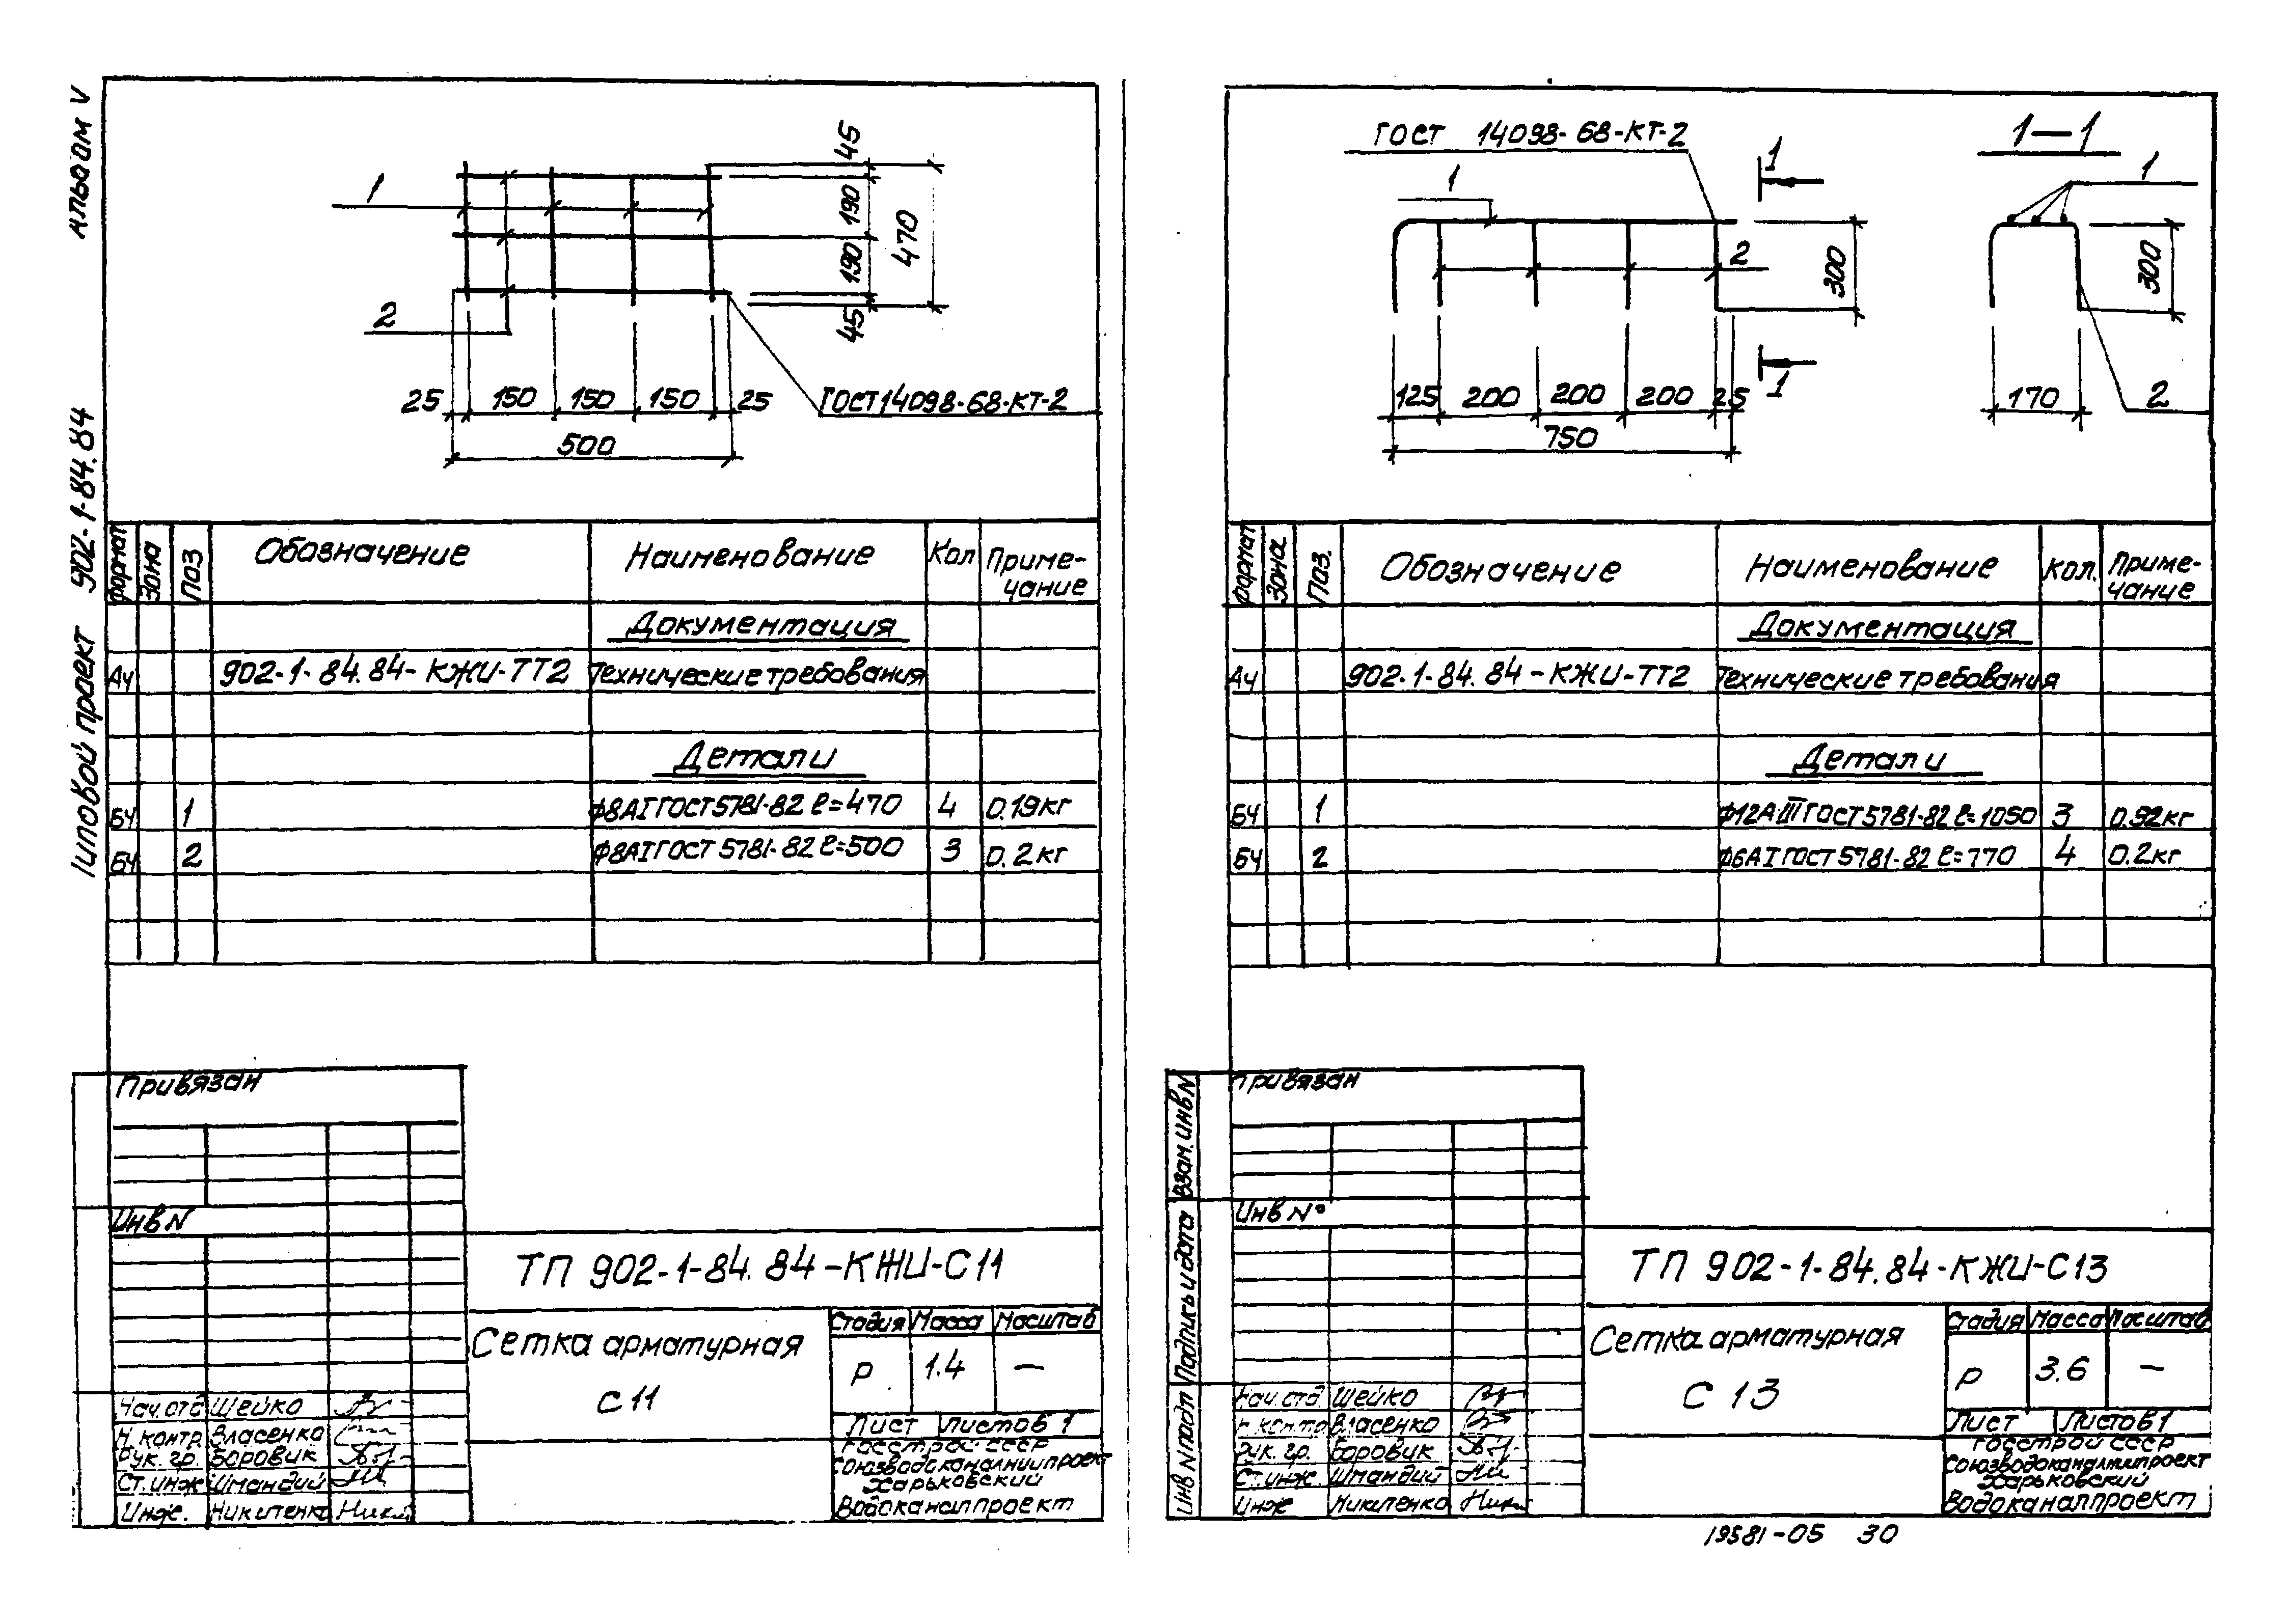 Альбом V
Типовой проект 902-1-84.84
1
2
45
190
190
45
470
25 150 150 150 25
500
ГОСТ 14098-68-КТ-2
Формат Зона Поз Обозначение Наименование Кол Приме-
чание
Документация
А4 902-1-84.84-КЖИ-ТТ2 Технические требования
Детали
БЧ 1 ф8АI ГОСТ 5781-82 ℓ=470 4 0.19кг
БЧ 2 ф8АI ГОСТ 5781-82 ℓ=500 3 0.2кг
Привязан
Инв N
ТП 902-1-84.84-КЖИ-С11
Сетка арматурная
С 11
Стадия Масса Масштаб
Р 1.4 —
Лист Листов 1
Госстрой СССР
Союзводоканалниипроект
Харьковский
Водоканалпроект
Нач.отд Шейко
Н. контр. Власенко
Рук. гр. Боровик
Ст.инж Шмандий
Инж. Никитенко
ГОСТ 14098-68-КТ-2
1
2
1
1
300
125 200 200 200 25
750
1—1
1
300
170
2
Формат Зона Поз. Обозначение Наименование Кол. Приме-
чание
Документация
А4 902-1-84.84-КЖИ-ТТ2 Технические требования
Детали
БЧ 1 ф12АIII ГОСТ 5781-82 ℓ=1050 3 0.92кг
БЧ 2 ф6АI ГОСТ 5781-82 ℓ=770 4 0.2кг
Привязан
Инв N°
Взам. инв N
Подпись и дата
Инв N подл
ТП 902-1-84.84-КЖИ-С13
Сетка арматурная
С 13
Стадия Масса Масштаб
Р 3.6 —
Лист Листов 1
Госстрой СССР
Союзводоканалниипроект
Харьковский
Водоканалпроект
Нач.отд. Шейко
Н.контр Власенко
Рук. гр. Боровик
Ст.инж. Шмандий
Инж Никитенко
19581-05 30